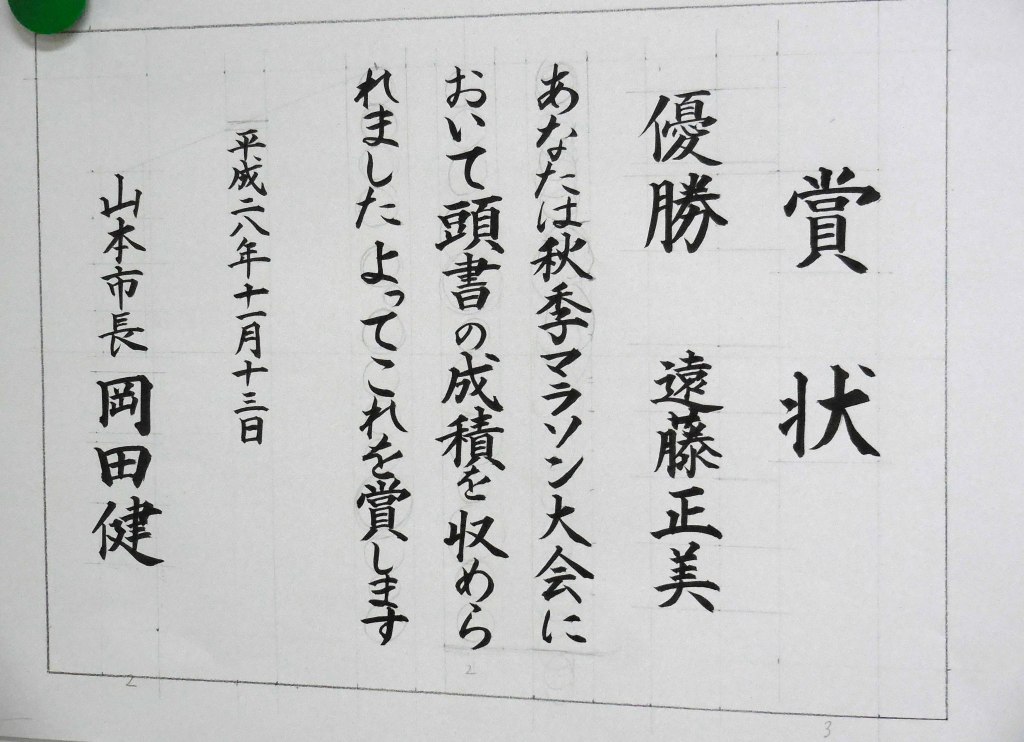 賞状
優勝 遠藤正美
あなたは秋季マラソン大会に
おいて頭書の成績を収めら
れました よってこれを賞します
平成二八年十一月十三日
山本市長 岡田健
2
2
3